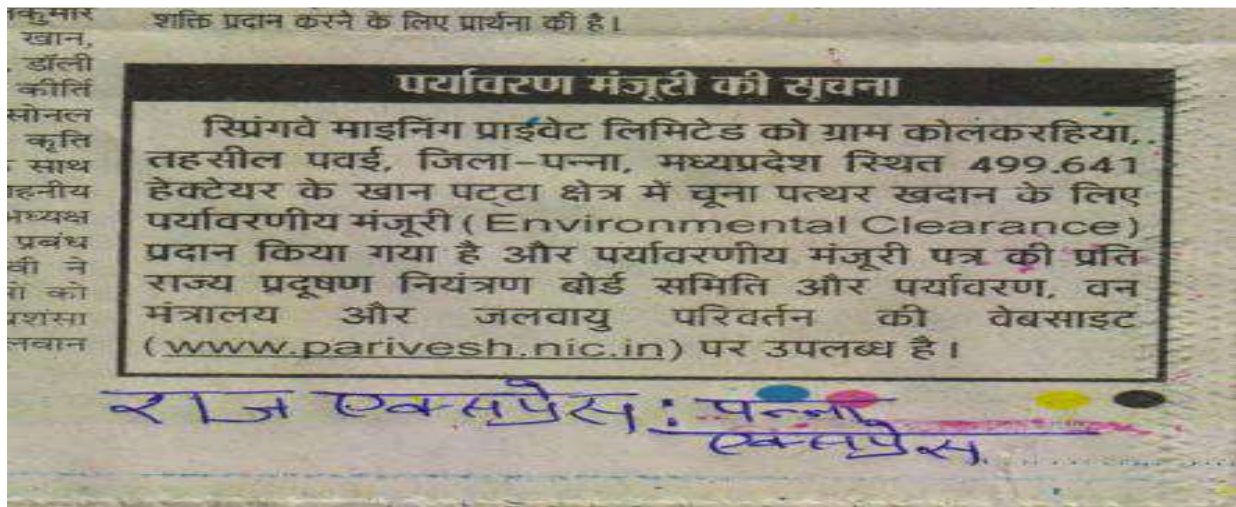 शक्ति प्रदान करने के लिए प्रार्थना की है।
खान,
डॉली
कीर्ति
सोनल
कृति
साथ
प्रबंध
पर्यावरण मंजूरी की सूचना
स्प्रिंगवे माइनिंग प्राईवेट लिमिटेड को ग्राम कोलकरहिया,
तहसील पवई, जिला-पन्ना, मध्यप्रदेश स्थित 499.641
हेक्टेयर के खान पट्टा क्षेत्र में चूना पत्थर खदान के लिए
पर्यावरणीय मंजूरी (Environmental Clearance)
प्रदान किया गया है और पर्यावरणीय मंजूरी पत्र की प्रति
राज्य प्रदूषण नियंत्रण बोर्ड समिति और पर्यावरण, वन
मंत्रालय और जलवायु परिवर्तन की वेबसाइट
(www.parivesh.nic.in) पर उपलब्ध है।
राज एक्सप्रेस: पन्ना
एक्सप्रेस